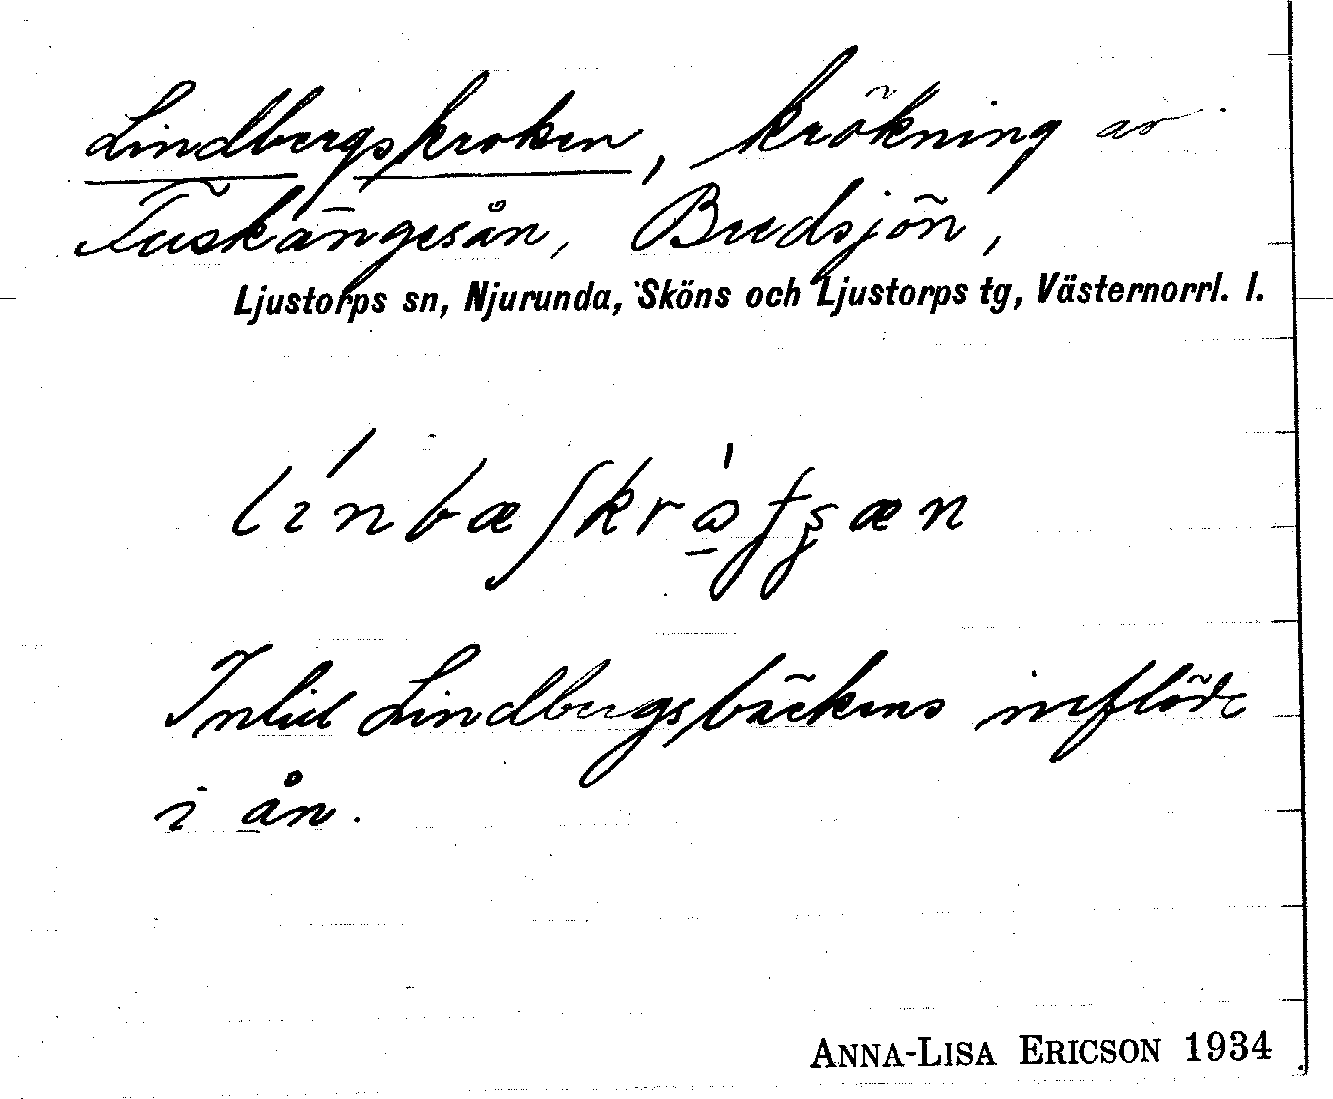 Lindbergskroken, krökning av
Tuskängesån, Bredsjön,
Ljustorps sn, Njurunda, Sköns och Ljustorps tg, Västernorrl. l.
Invid Lindbergsbäckens inflöde
i ån.
ANNA-LISA ERICSON 1934